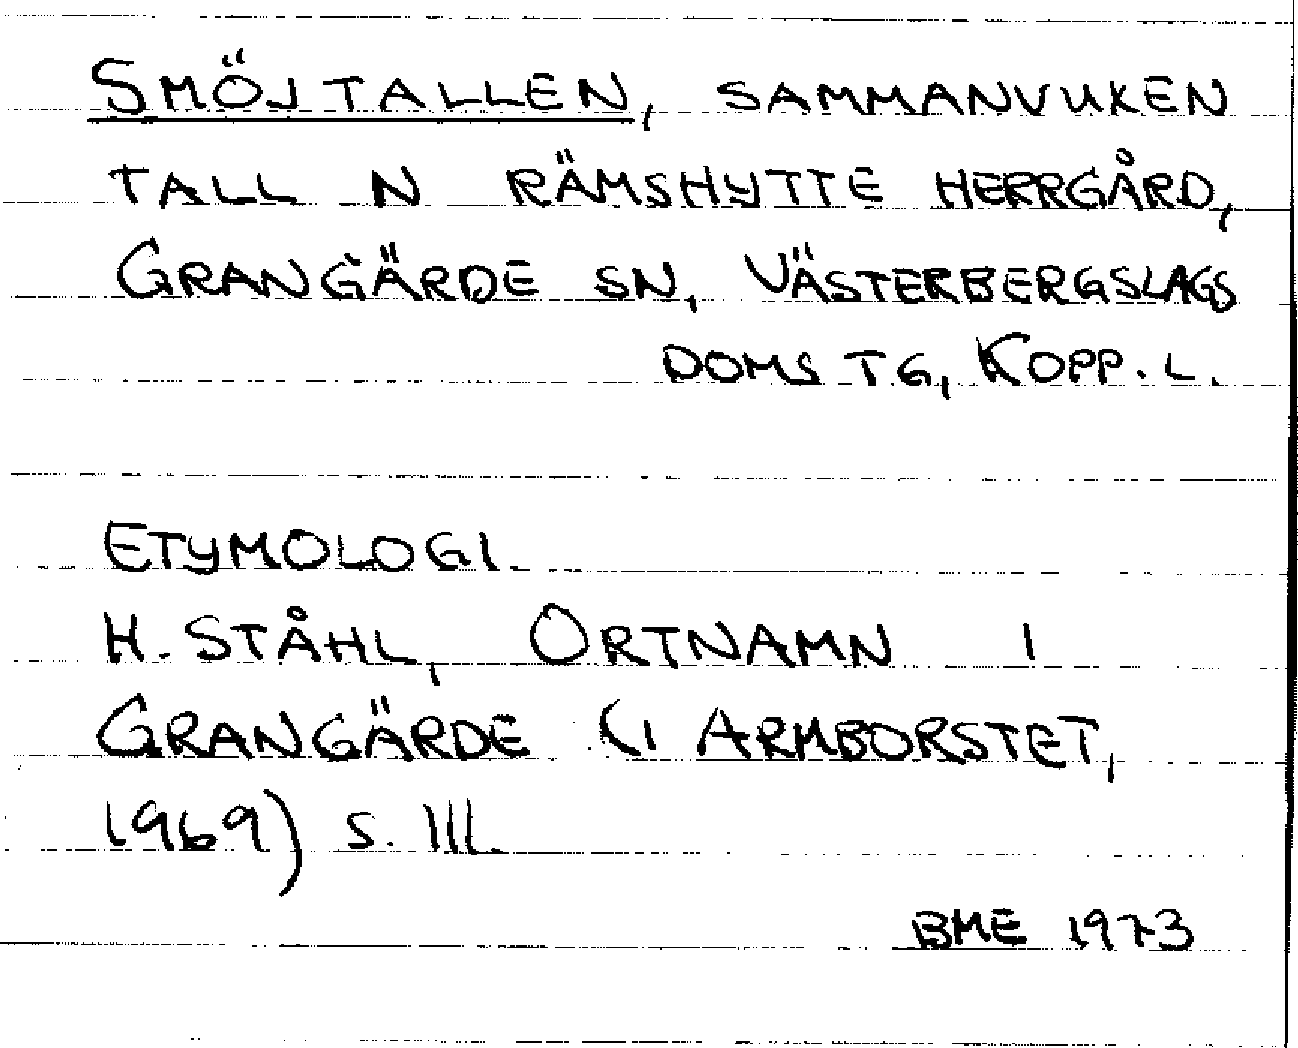 SMÖJTALLEN, SAMMANVUXEN
TALL N RÄMSHYTTE HERRGÅRD,
GRANGÄRDE SN, VÄSTERBERGSLAGS
DOMS TG, KOPP. L.
ETYMOLOGI.
H. STÅHL, ORTNAMN I
GRANGÄRDE (I ARMBORSTET,
1969) S. 111.
BME 1973